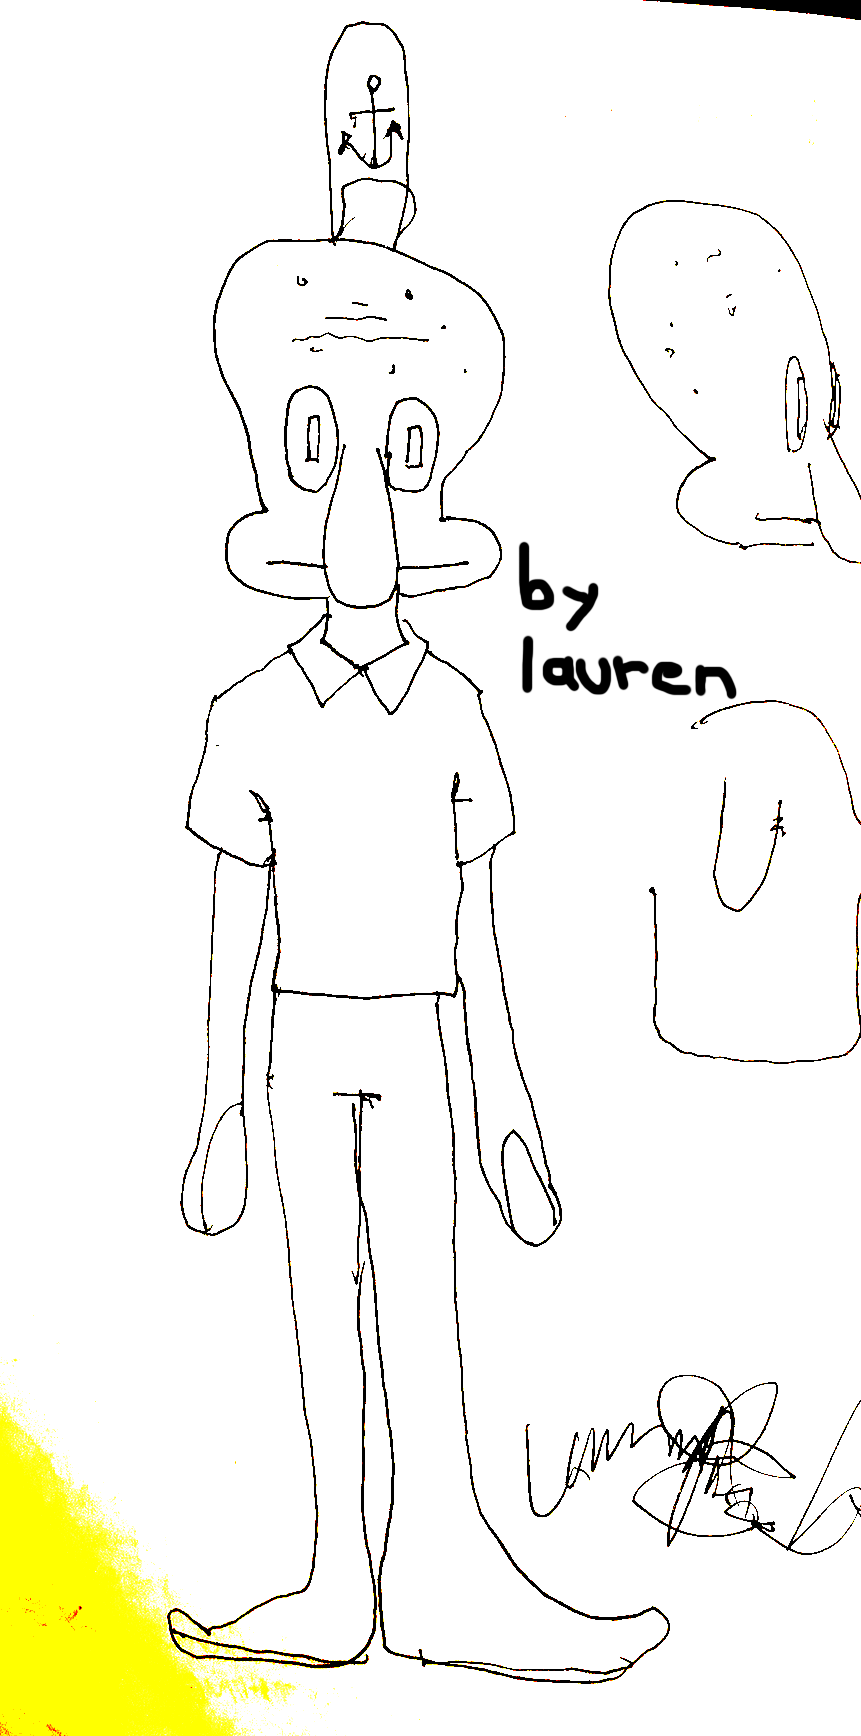 by
lauren